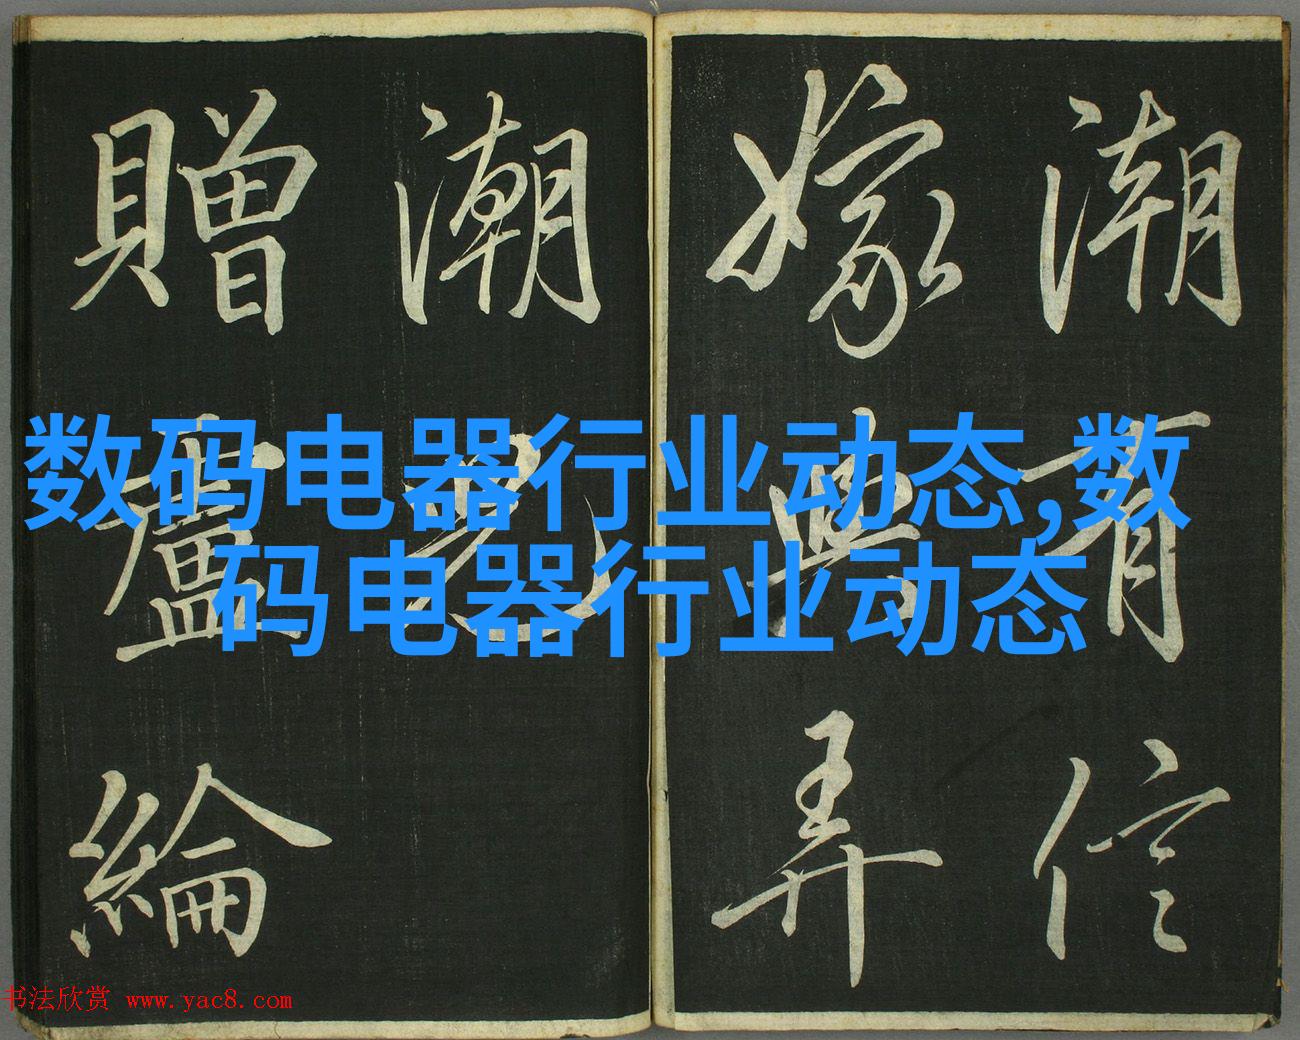 潮有信
嫁與弄
潮兒
贈盧綸
数码电器行业动态,数
码电器行业动态
书法欣赏 www.yac8.com